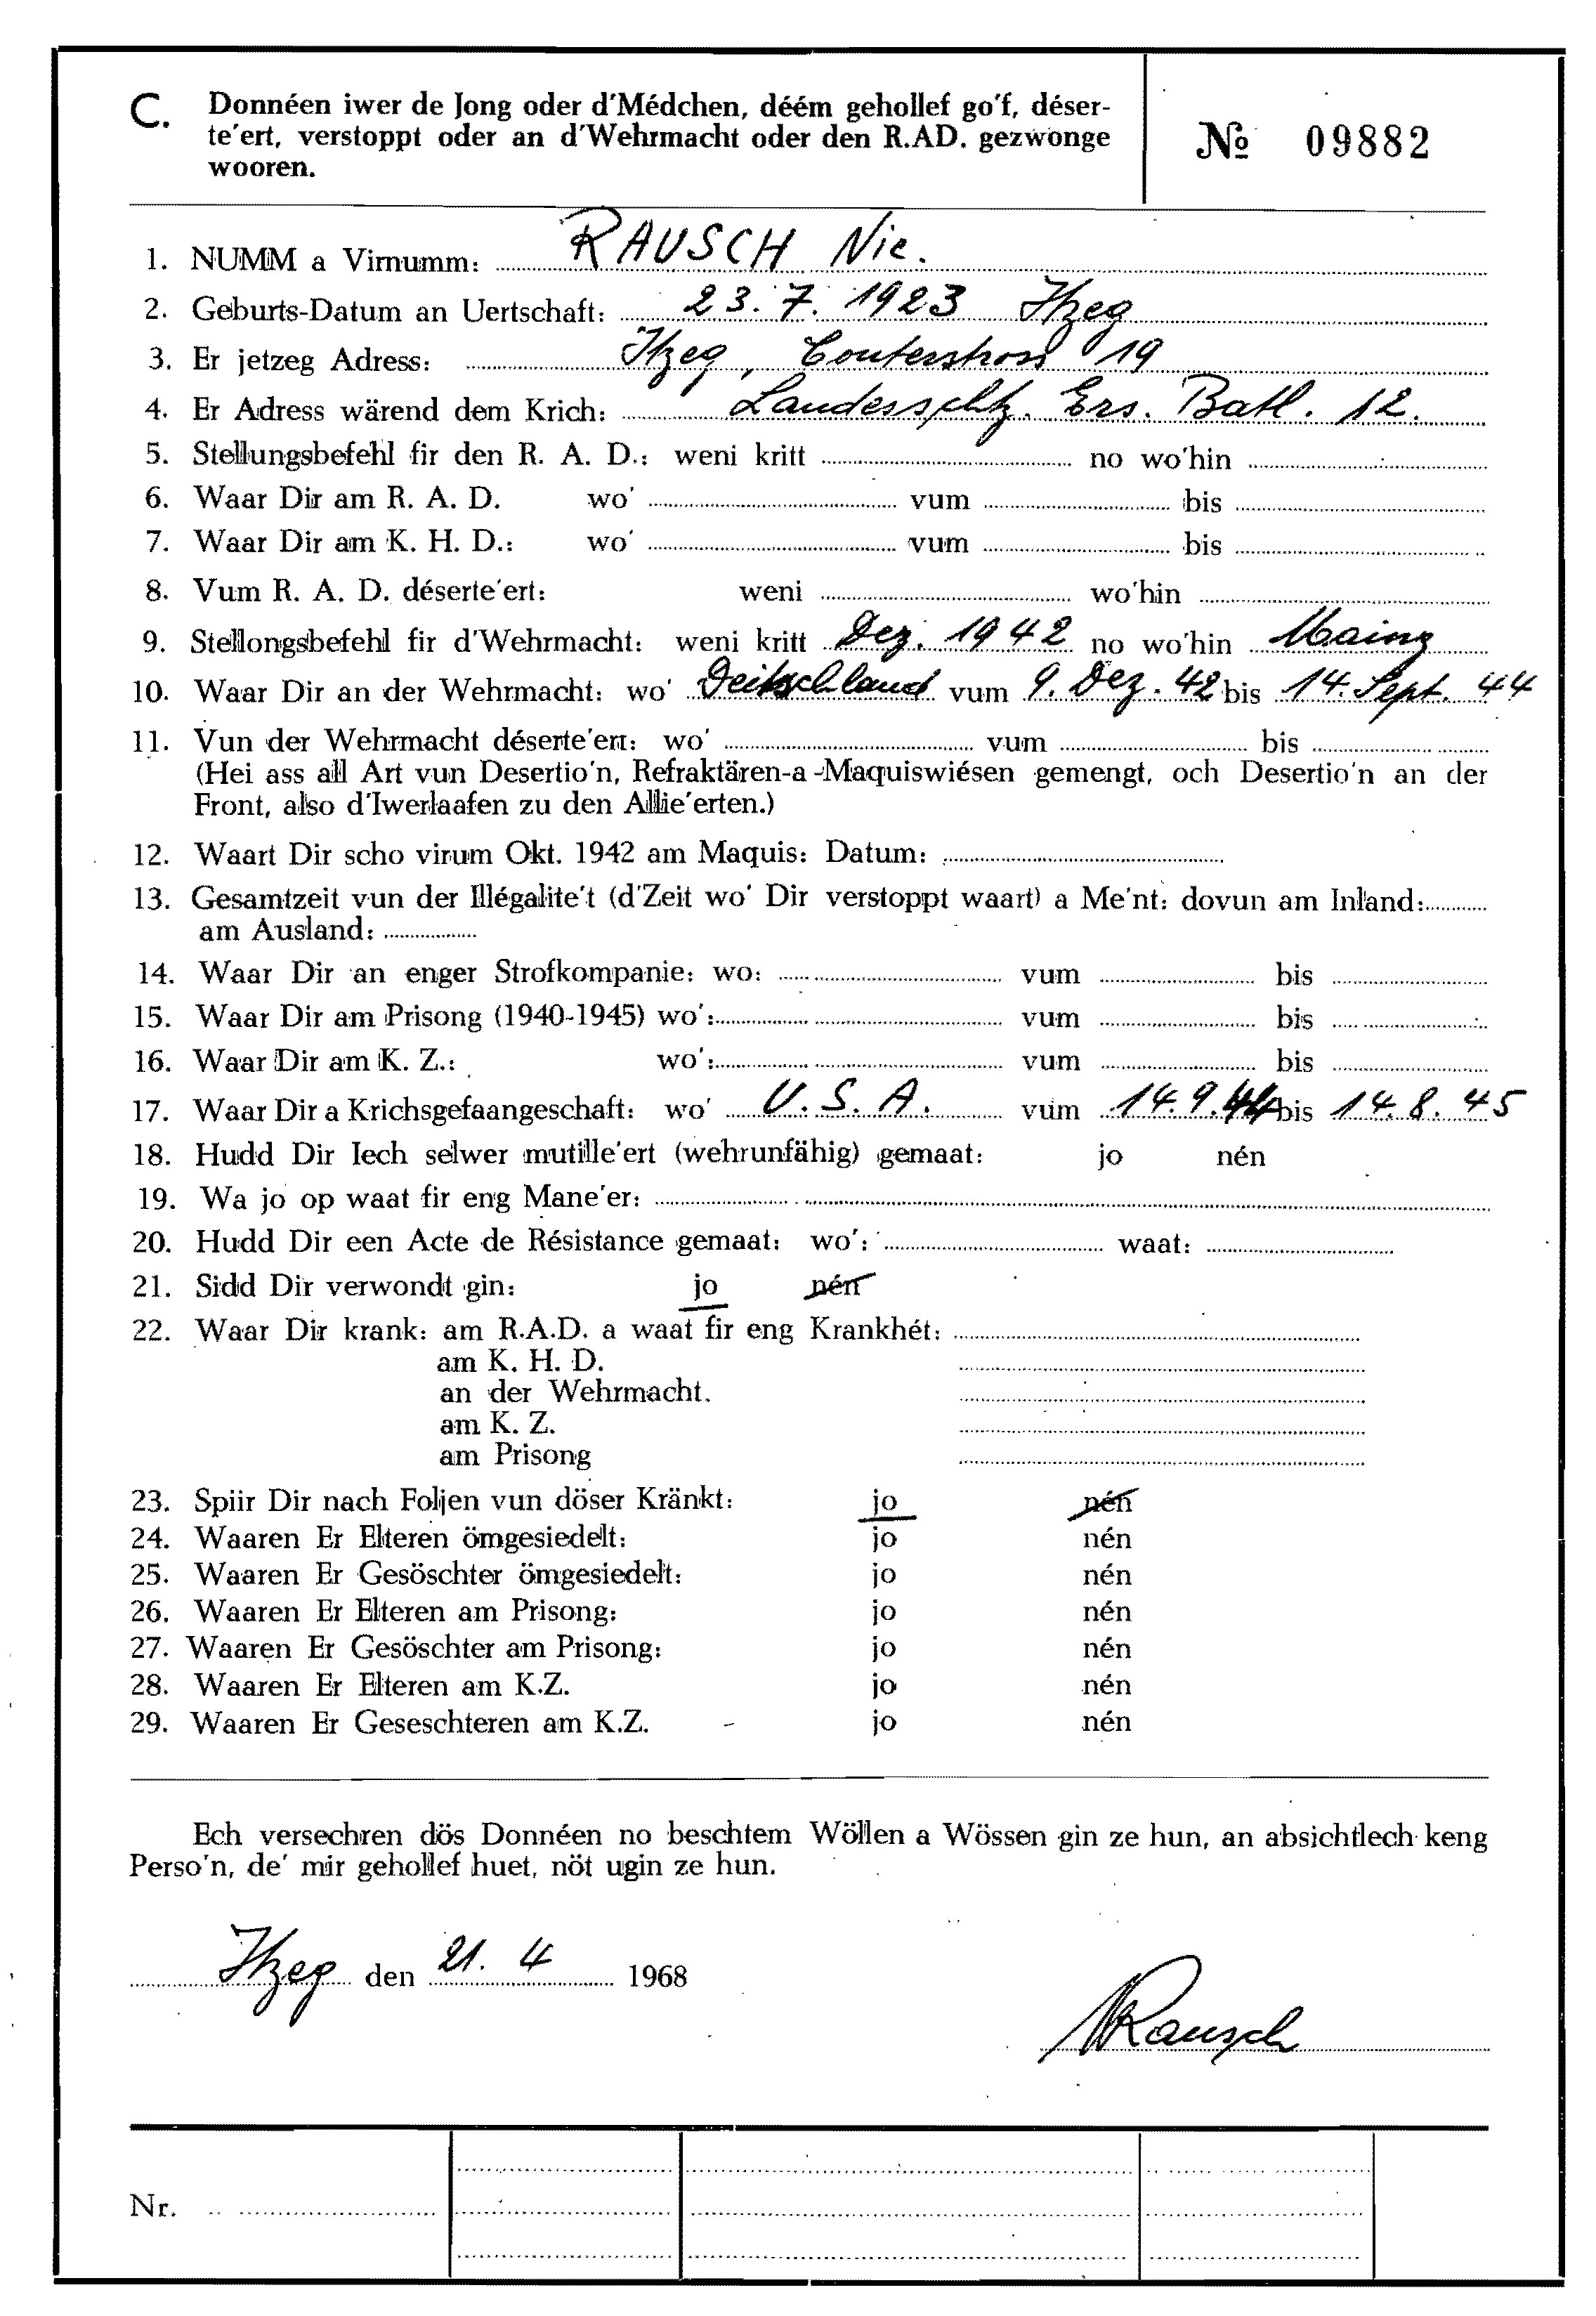 C. Donnéen iwer de Jong oder d'Médchen, déém gehollef go'f, déser-
te'ert, verstoppt oder an d'Wehrmacht oder den R.AD. gezwonge
wooren.
№ 09882
1. NUMM a Virnumm: RAUSCH Nic.
2. Geburts-Datum an Uertschaft: 23.7.1923 Itzeg
3. Er jetzeg Adress: Itzeg, Conterstross 19
4. Er Adress wärend dem Krich: Landesschtz. Ers. Batl. 12.
5. Stellungsbefehl fir den R. A. D.: weni kritt no wo'hin
6. Waar Dir am R. A. D. wo' vum bis
7. Waar Dir am K. H. D.: wo' vum bis
8. Vum R. A. D. déserte'ert: weni wo'hin
9. Stellongsbefehl fir d'Wehrmacht: weni kritt Dez. 1942 no wo'hin Mainz
10. Waar Dir an der Wehrmacht: wo' Deitschland vum 9. Dez. 42 bis 14. Sept. 44
11. Vun der Wehrmacht déserte'ert: wo' vum bis
(Hei ass all Art vun Desertio'n, Refraktären-a-Maquiswiésen gemengt, och Desertio'n an der
Front, also d'Iwerlaafen zu den Allie'erten.)
12. Waart Dir scho virum Okt. 1942 am Maquis: Datum:
13. Gesamtzeit vun der Illégalite't (d'Zeit wo' Dir verstoppt waart) a Me'nt: dovun am Inland:
am Ausland:
14. Waar Dir an enger Strofkompanie: wo: vum bis
15. Waar Dir am Prisong (1940-1945) wo': vum bis
16. Waar Dir am K. Z.: wo': vum bis
17. Waar Dir a Krichsgefaangeschaft: wo' U.S.A. vum 14.9.44 bis 14.8.45
18. Hudd Dir Iech selwer mutille'ert (wehrunfähig) gemaat: jo nén
19. Wa jo op waat fir eng Mane'er:
20. Hudd Dir een Acte de Résistance gemaat: wo': waat:
21. Sidd Dir verwondt gin: jo nén
22. Waar Dir krank: am R.A.D. a waat fir eng Krankhét:
am K. H. D.
an der Wehrmacht.
am K. Z.
am Prisong
23. Spiir Dir nach Foljen vun döser Kränkt: jo nén
24. Waaren Er Elteren ömgesiedelt: jo nén
25. Waaren Er Gesöschter ömgesiedelt: jo nén
26. Waaren Er Elteren am Prisong: jo nén
27. Waaren Er Gesöschter am Prisong: jo nén
28. Waaren Er Elteren am K.Z. jo nén
29. Waaren Er Geseschteren am K.Z. jo nén
Ech versechren dös Donnéen no beschtem Wöllen a Wössen gin ze hun, an absichtlech keng
Perso'n, de' mir gehollef huet, nöt ugin ze hun.
Itzeg den 21. 4 1968
NRausch
Nr.